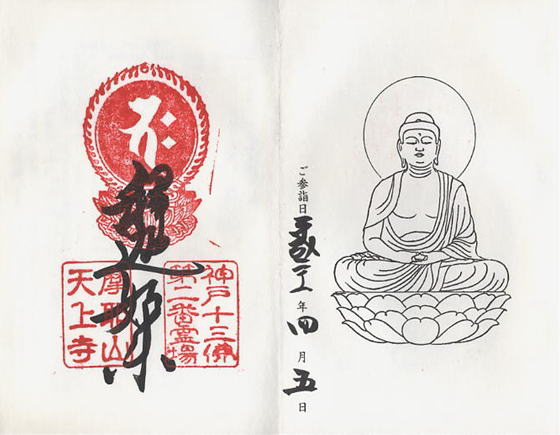 ご参詣日 年 四 月 五 日
釋迦如来
神戸十三佛
第二番霊場
摩耶山
天上寺